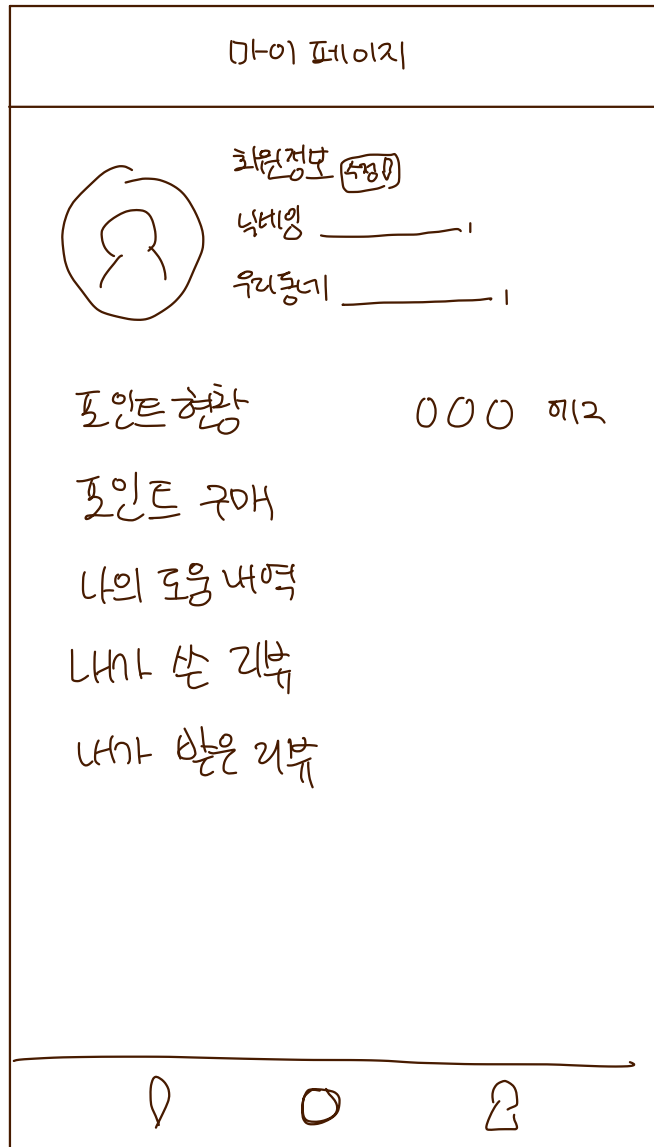 마이 페이지
회원정보 수정
닉네임
우리동네
포인트 현황 000
포인트 구매
나의 도움 내역
내가 쓴 리뷰
내가 받은 리뷰